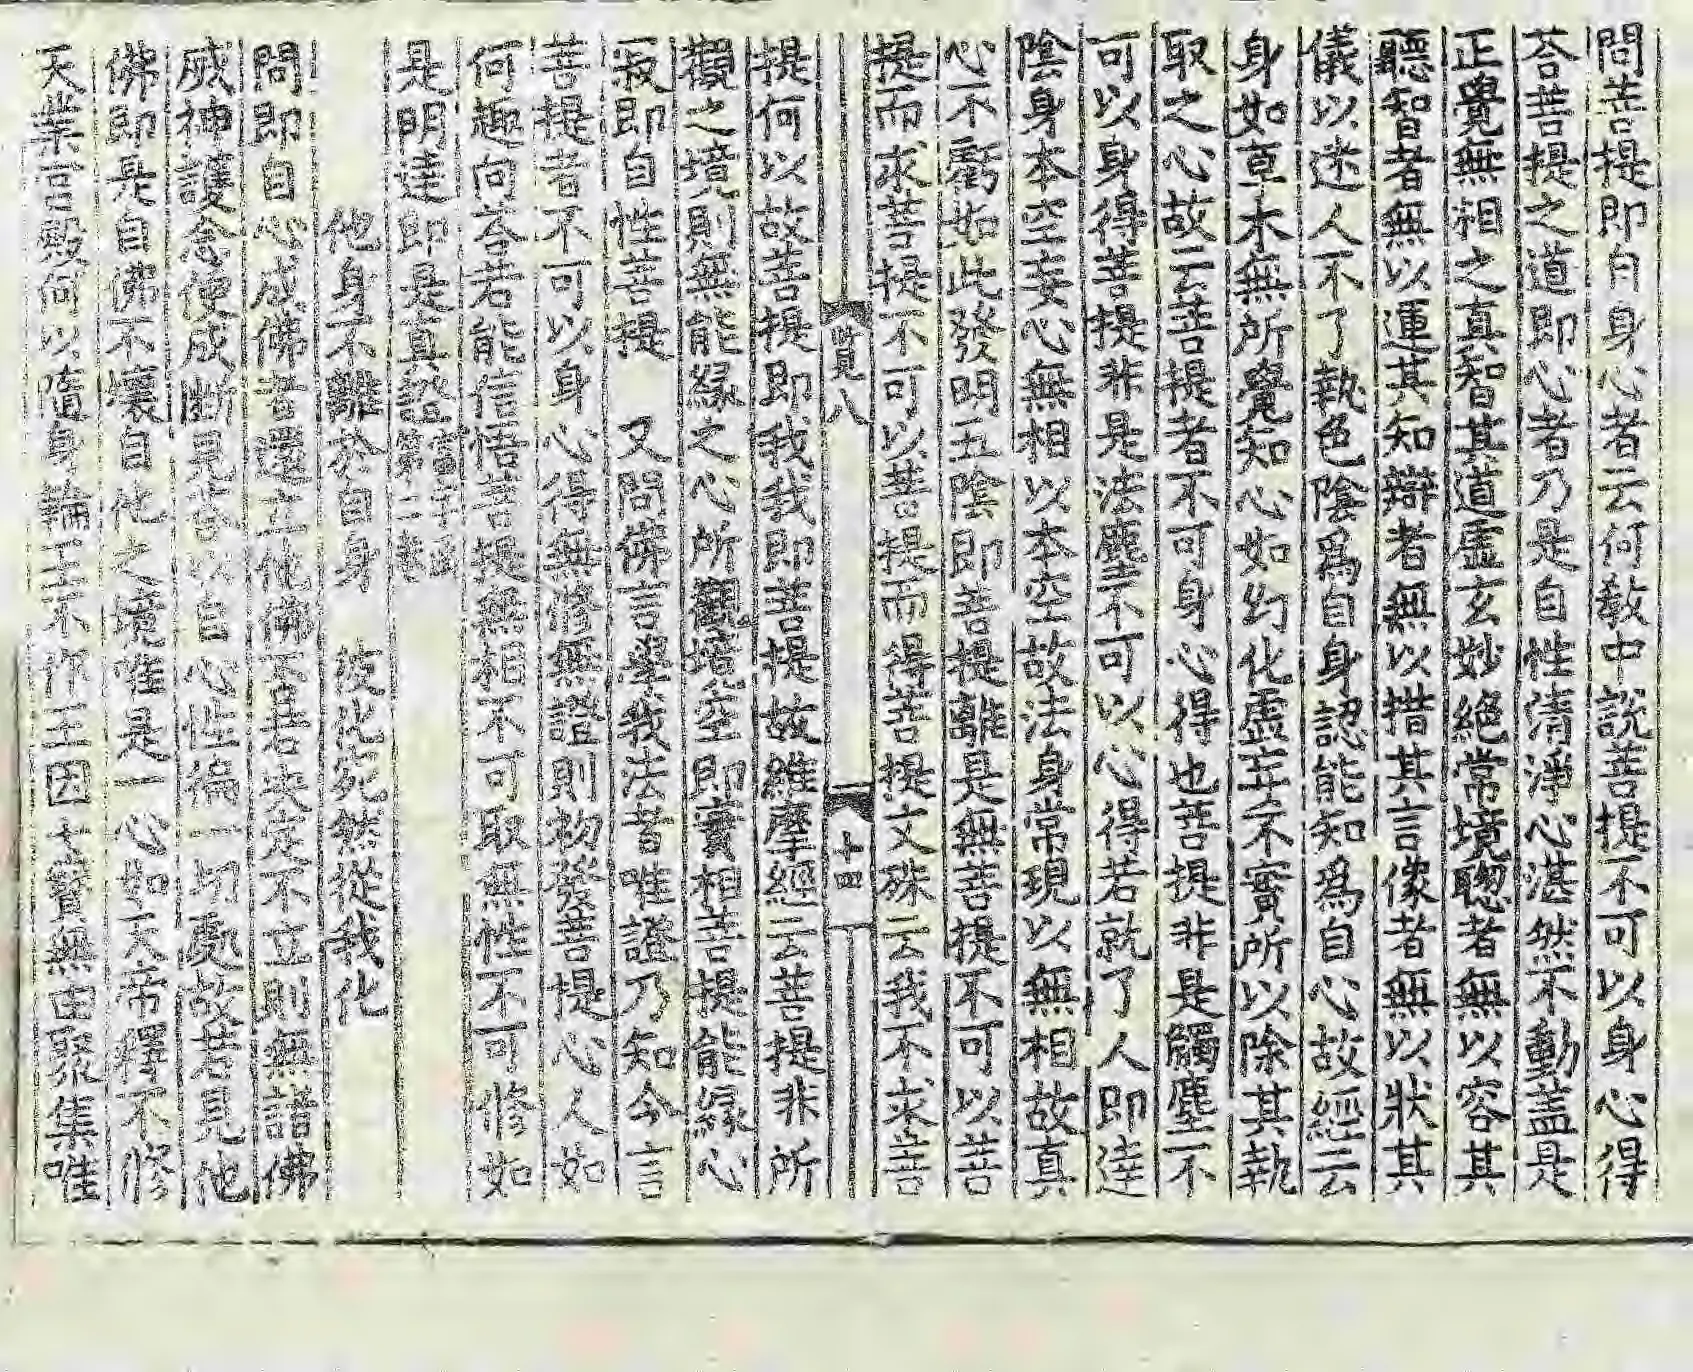 問菩提即自身心者云何敎中說菩提不可以身心得
荅菩提之道即心者乃是自性清淨心湛然不動盖是
正覺無相之真智其道虛玄妙絶常境聦者無以容其
聽智者無以運其知辯者無以措其言像者無以狀其
儀以迷人不了執色陰爲自身認能知爲自心故經云
身如草木無所覺知心如幻化虛妄不實所以除其執
取之心故云菩提者不可身心得也菩提非是觸塵不
可以身得菩提非是法塵不可以心得若就了人即達
陰身本空妄心無相以本空故法身常現以無相故真
心不虧如此發明五陰即菩提離是無菩提不可以菩
提而求菩提不可以菩提而得菩提文殊云我不求菩
賢八
十四
提何以故菩提即我我即菩提故維摩經云菩提非所
觀之境則無能緣之心所觀境空即實相菩提能緣心
寂即自性菩提　又問佛言學我法者唯證乃知今言
菩提者不可以身心得無修無證則初發菩提心人如
何趣向荅若能信悟菩提無相不可取無性不可修如
是明達即是真證
他身不離於自身　彼化宛然從我化
問即自心成佛者還立他佛不若决定不立則無諸佛
威神護念便成斷見荅以自心性徧一切處故若見他
佛即是自佛不壞自他之境唯是一心如天帝釋不修
天業宫殿何以隨身輪王不作王因七寶無由聚集唯